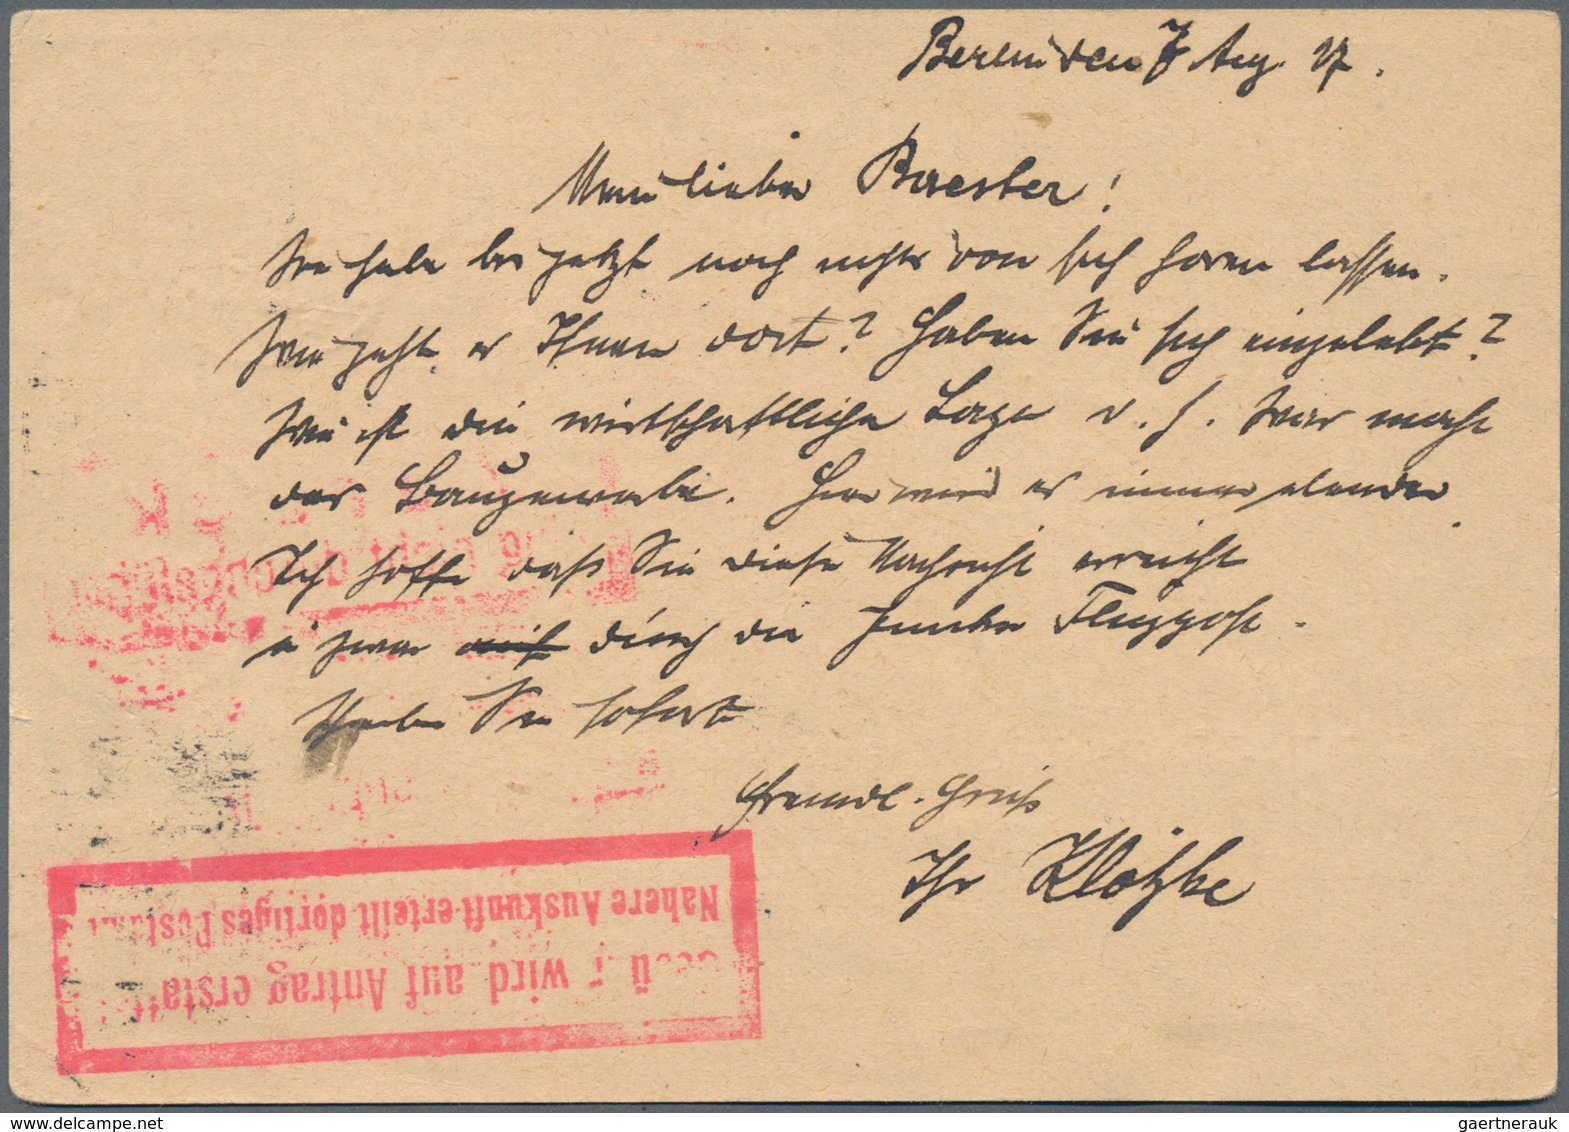 Berlin den 7 Aug. 17.
Mein lieber Baester!
Sie habe bis jetzt noch nichts von sich hören lassen.
Wie geht es Ihnen dort? Haben Sie sich eingelebt?
Wie ist die wirtschaftliche Lage d. h. Was macht
das Baugewerbe. Hier wird es immer elender
Ich hoffe daß Sie diese Nachricht erreicht
u zwar mit durch die Junker Flugpost.
Sie sofort
Freundl. Gruß
Ihr Klotzke
wird auf Antrag
Nähere Auskunft erteilt dortiges Postamt
gaertnerauk